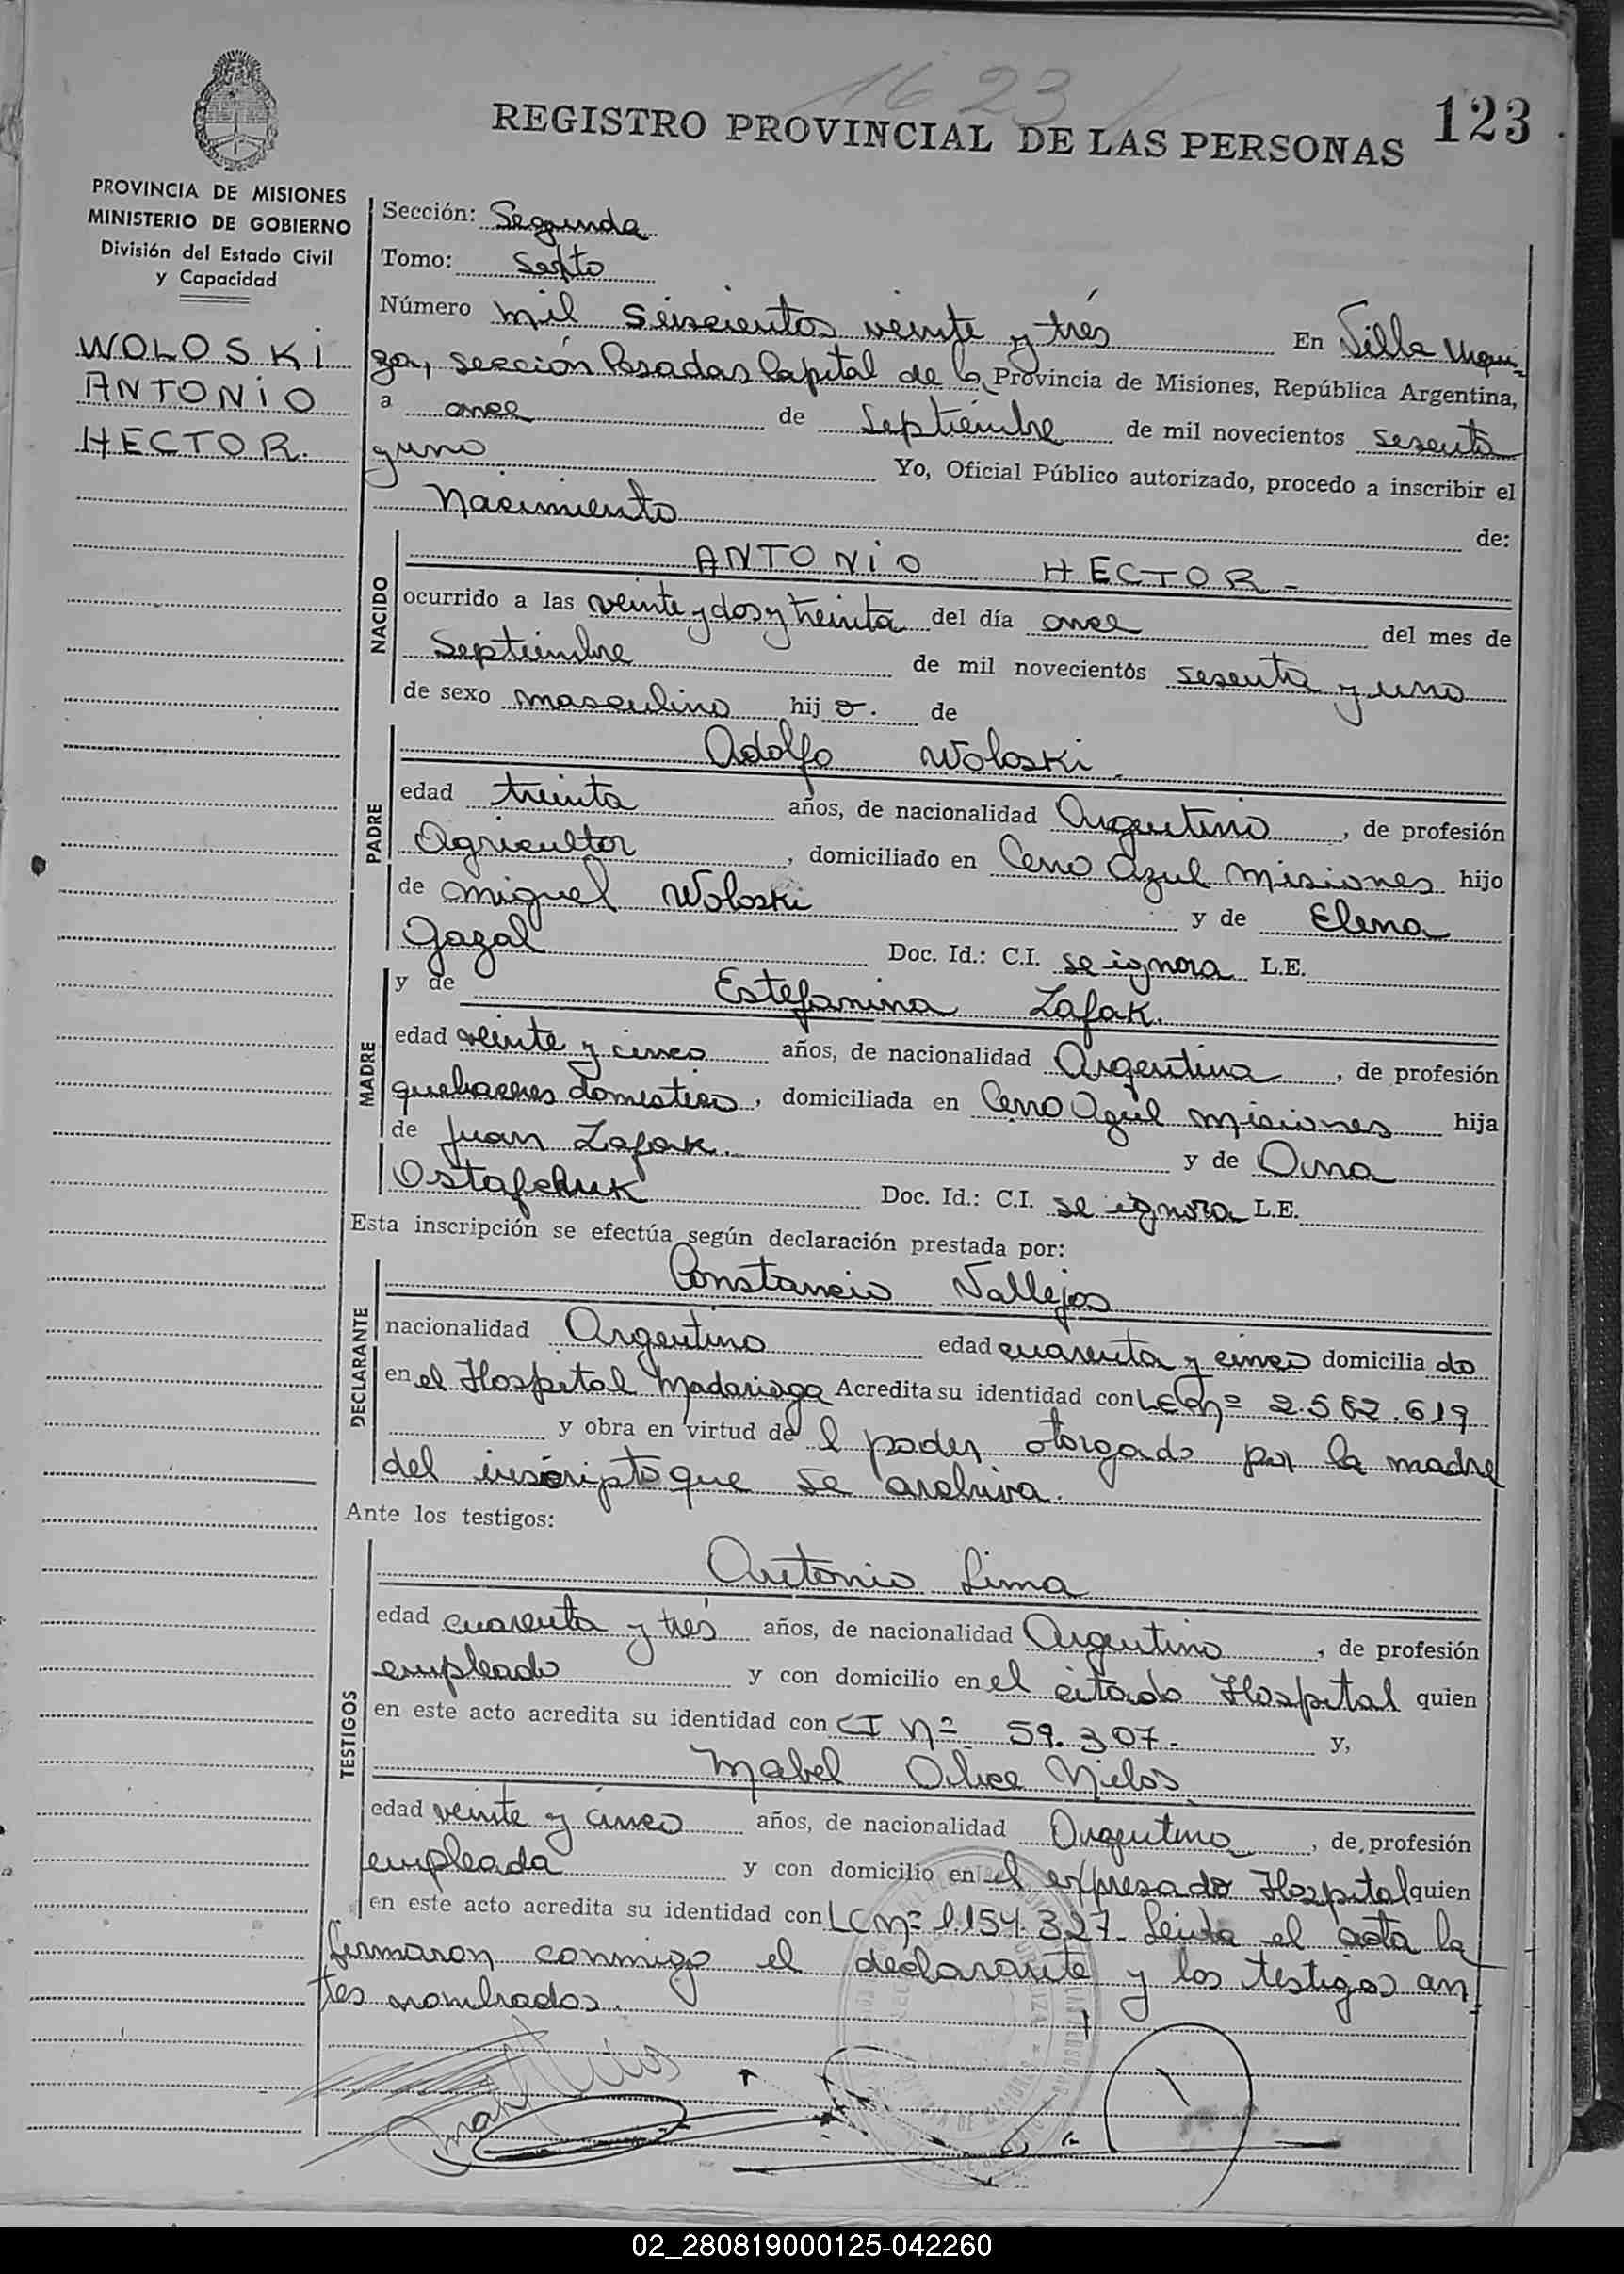 1623
REGISTRO PROVINCIAL DE LAS PERSONAS 123
PROVINCIA DE MISIONES
MINISTERIO DE GOBIERNO
División del Estado Civil
y Capacidad
WOLOSKI
ANTONIO
HECTOR.
Sección: Segunda
Tomo: Sexto
Número mil seiscientos veinte y trés En Villa Urqui-
za, sección Posadas Capital de la Provincia de Misiones, República Argentina,
a once de Septiembre de mil novecientos sesenta
y uno Yo, Oficial Público autorizado, procedo a inscribir el
Nacimiento de:
NACIDO
ANTONIO HECTOR-
ocurrido a las veinte y dos y treinta del día once del mes de
Septiembre de mil novecientos sesenta y uno
de sexo masculino hijo. de
PADRE
Adolfo Woloski.
edad treinta años, de nacionalidad Argentino, de profesión
Agricultor, domiciliado en Cerro Azul Misiones hijo
de Miguel Woloski y de Elena
Gazal Doc. Id.: C.I. se ignora L.E.
MADRE
y de Estefanina Zafak.
edad veinte y cinco años, de nacionalidad Argentina, de profesión
quehaceres domestico, domiciliada en Cerro Azul Misiones hija
de Juan Zafak. y de Ana
Ostafchuk Doc. Id.: C.I. se ignora L.E.
Esta inscripción se efectúa según declaración prestada por:
DECLARANTE
Constancio Vallejos
nacionalidad Argentino edad cuarenta y cinco domiciliado
en el Hospital Madariaga Acredita su identidad con LE nº 2.582.619
y obra en virtud del poder otorgado por la madre
del inscripto que se archiva.
Ante los testigos:
TESTIGOS
Antonio Lima
edad cuarenta y trés años, de nacionalidad Argentino, de profesión
empleado y con domicilio en el citado Hospital quien
en este acto acredita su identidad con CI nº 59.307.- y,
Mabel Nielos
edad veinte y cinco años, de nacionalidad Argentina, de profesión
empleada y con domicilio en el expresado Hospital quien
en este acto acredita su identidad con LC nº 1.154.327- Leida el acta la
firmaron conmigo el declarante y los testigos an-
tes nombrados.
02_280819000125-042260